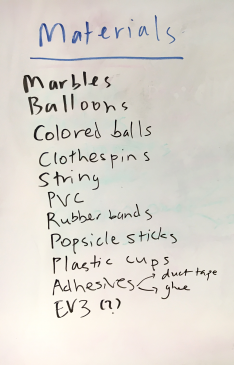 Materials
Marbles
Balloons
Colored balls
Clothespins
String
PVC
Rubber bands
Popsicle sticks
Plastic cups
Adhesives → duct tape
→ glue
EV3 (?)